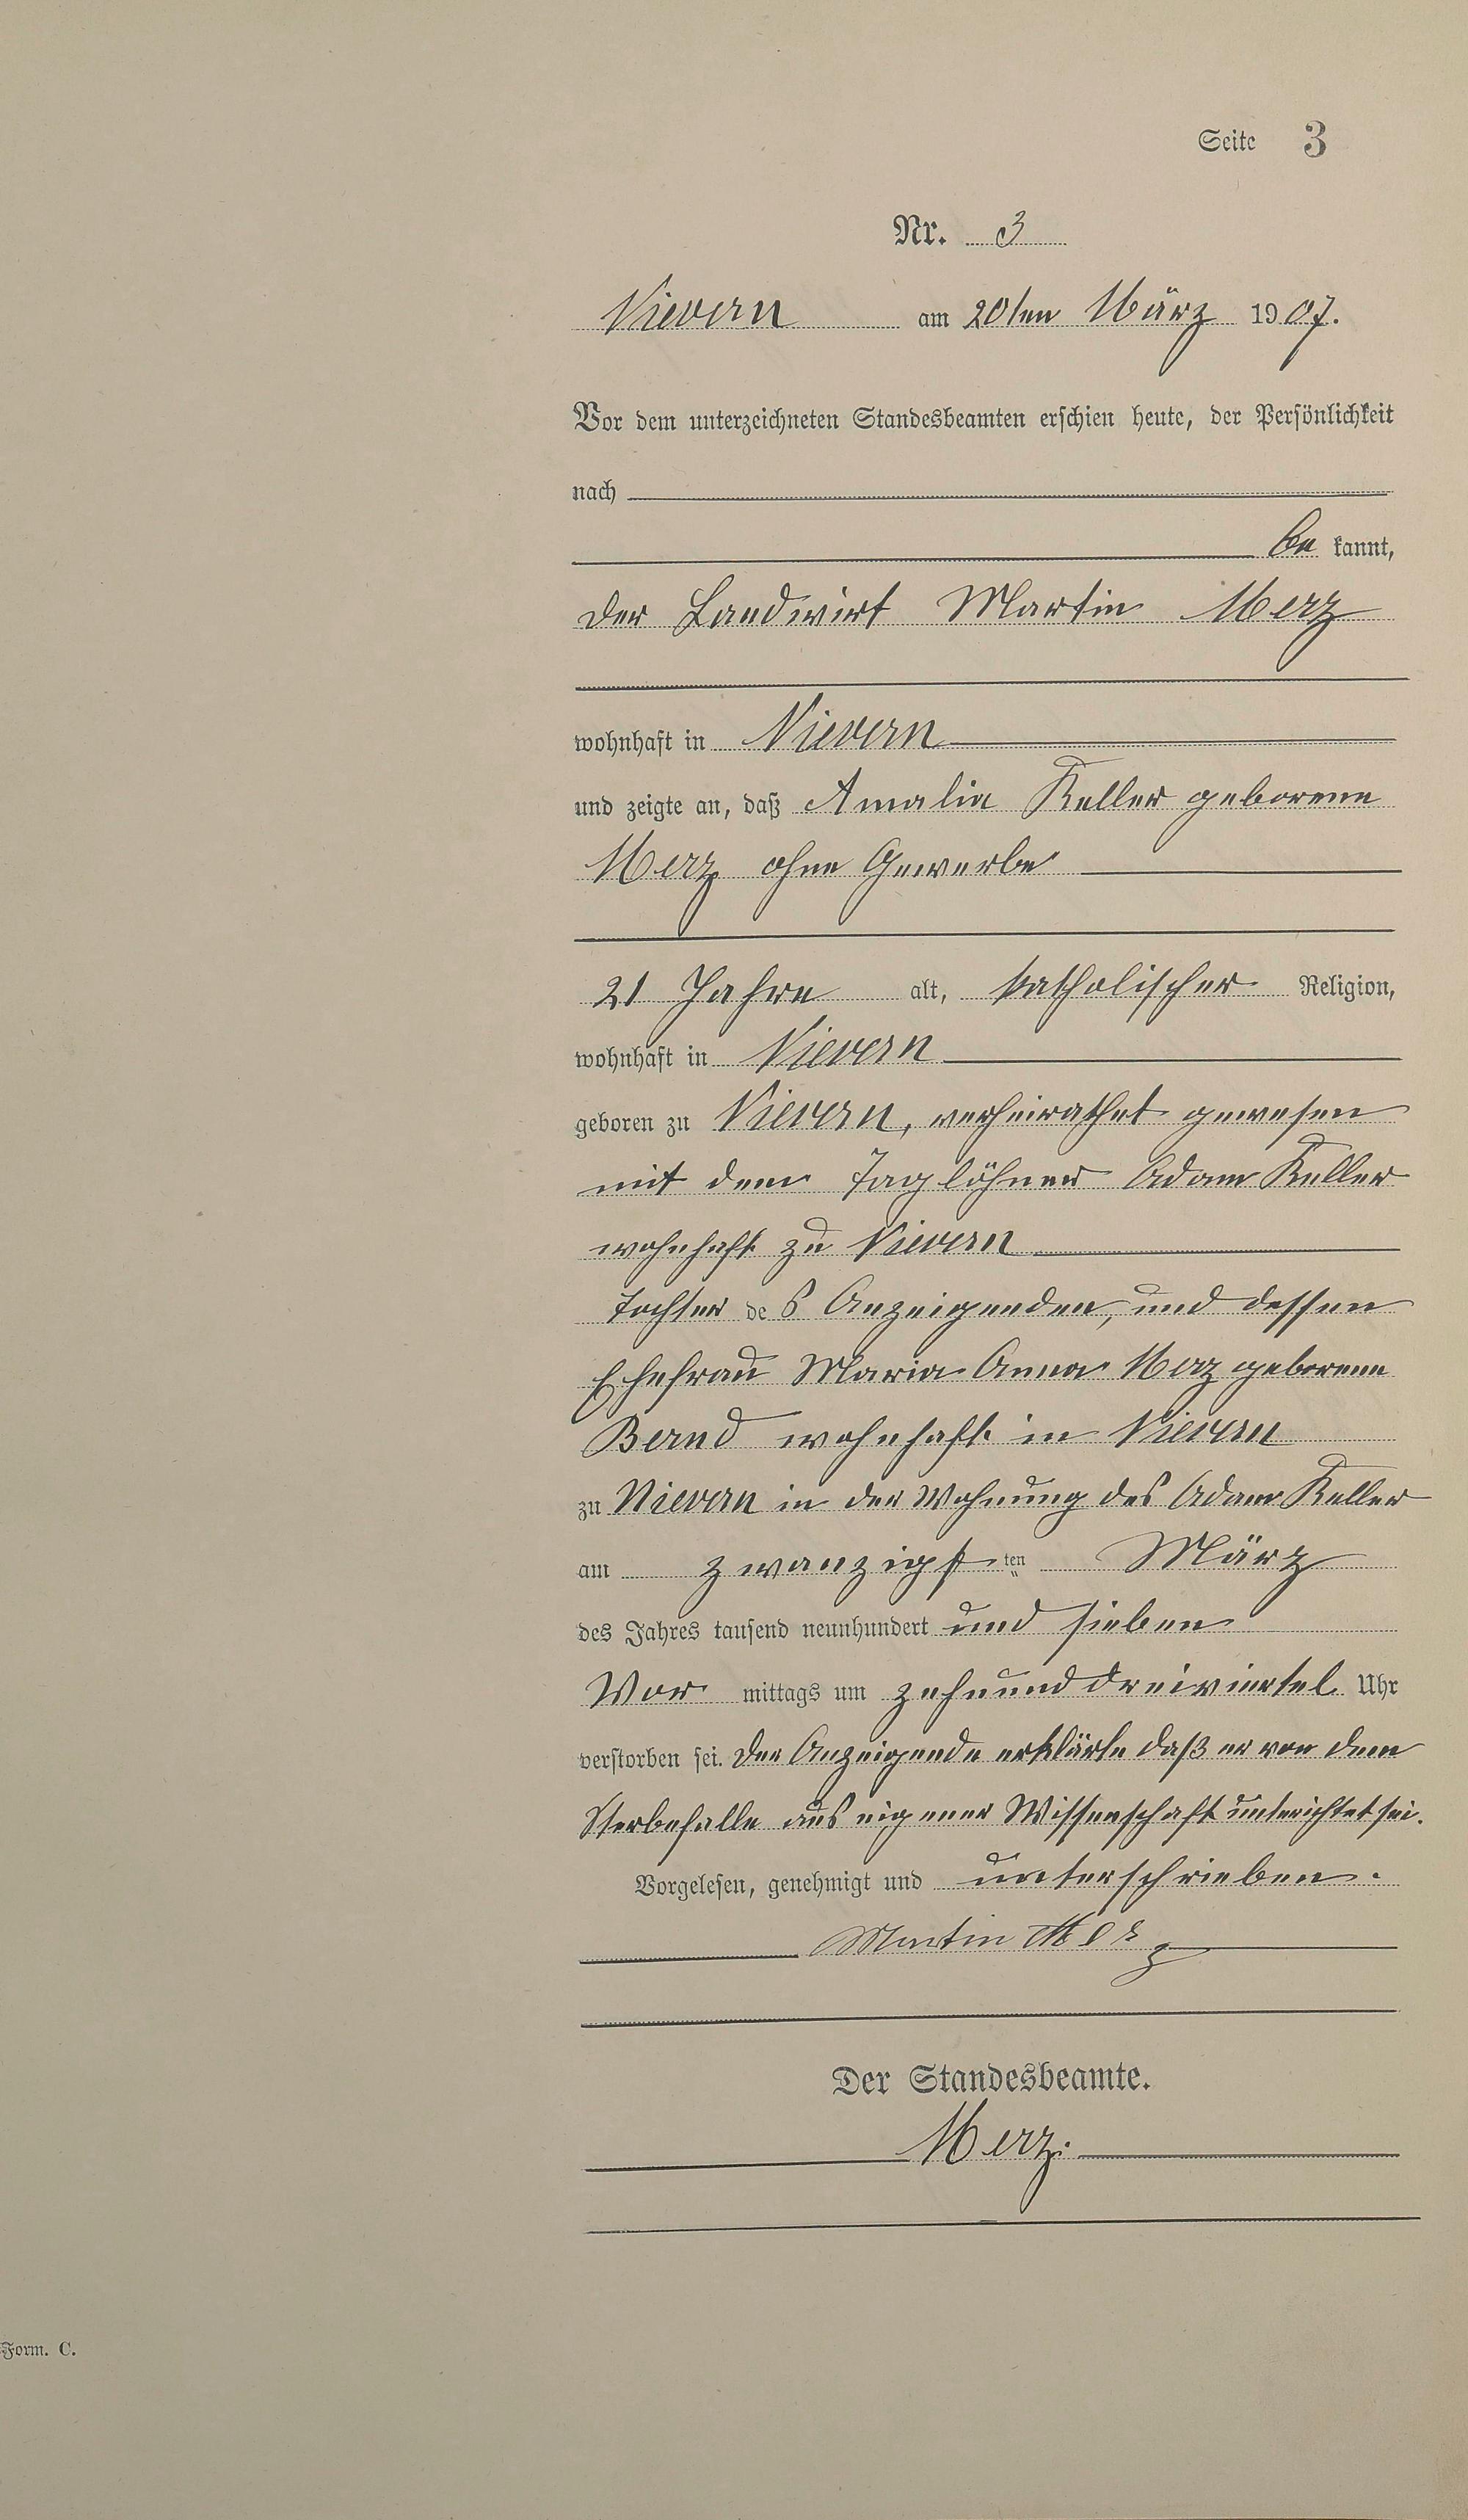 Seite 3
Nr. 3
Nievern am 20ten März 1907.
Vor dem unterzeichneten Standesbeamten erschien heute, der Persönlichkeit
nach
be kannt,
der Landwirt Martin Merz
wohnhaft in Nievern
und zeigte an, daß Amalia Keller geborene
Merz ohne Gewerbe
21 Jahre alt, katholischer Religion,
wohnhaft in Nievern
geboren zu Nievern, verheirathet gewesen
mit dem Taglöhner Adam Keller
wohnhaft zu Nievern
Tochter des Anzeigenden, und dessen
Ehefrau Maria Anna Merz geborene
Bernd wohnhaft in Nievern
zu Nievern in der Wohnung des Adam Keller
am zwanzigsten März
des Jahres tausend neunhundert und sieben
Vor mittags um zehnunddreiviertel Uhr
verstorben sei. Der Anzeigende erklärte daß er von dem
Sterbefalle aus eigener Wissenschaft unterichtet sei.
Vorgelesen, genehmigt und unterschrieben.
Martin Merz
Der Standesbeamte.
Merz.
Form. C.